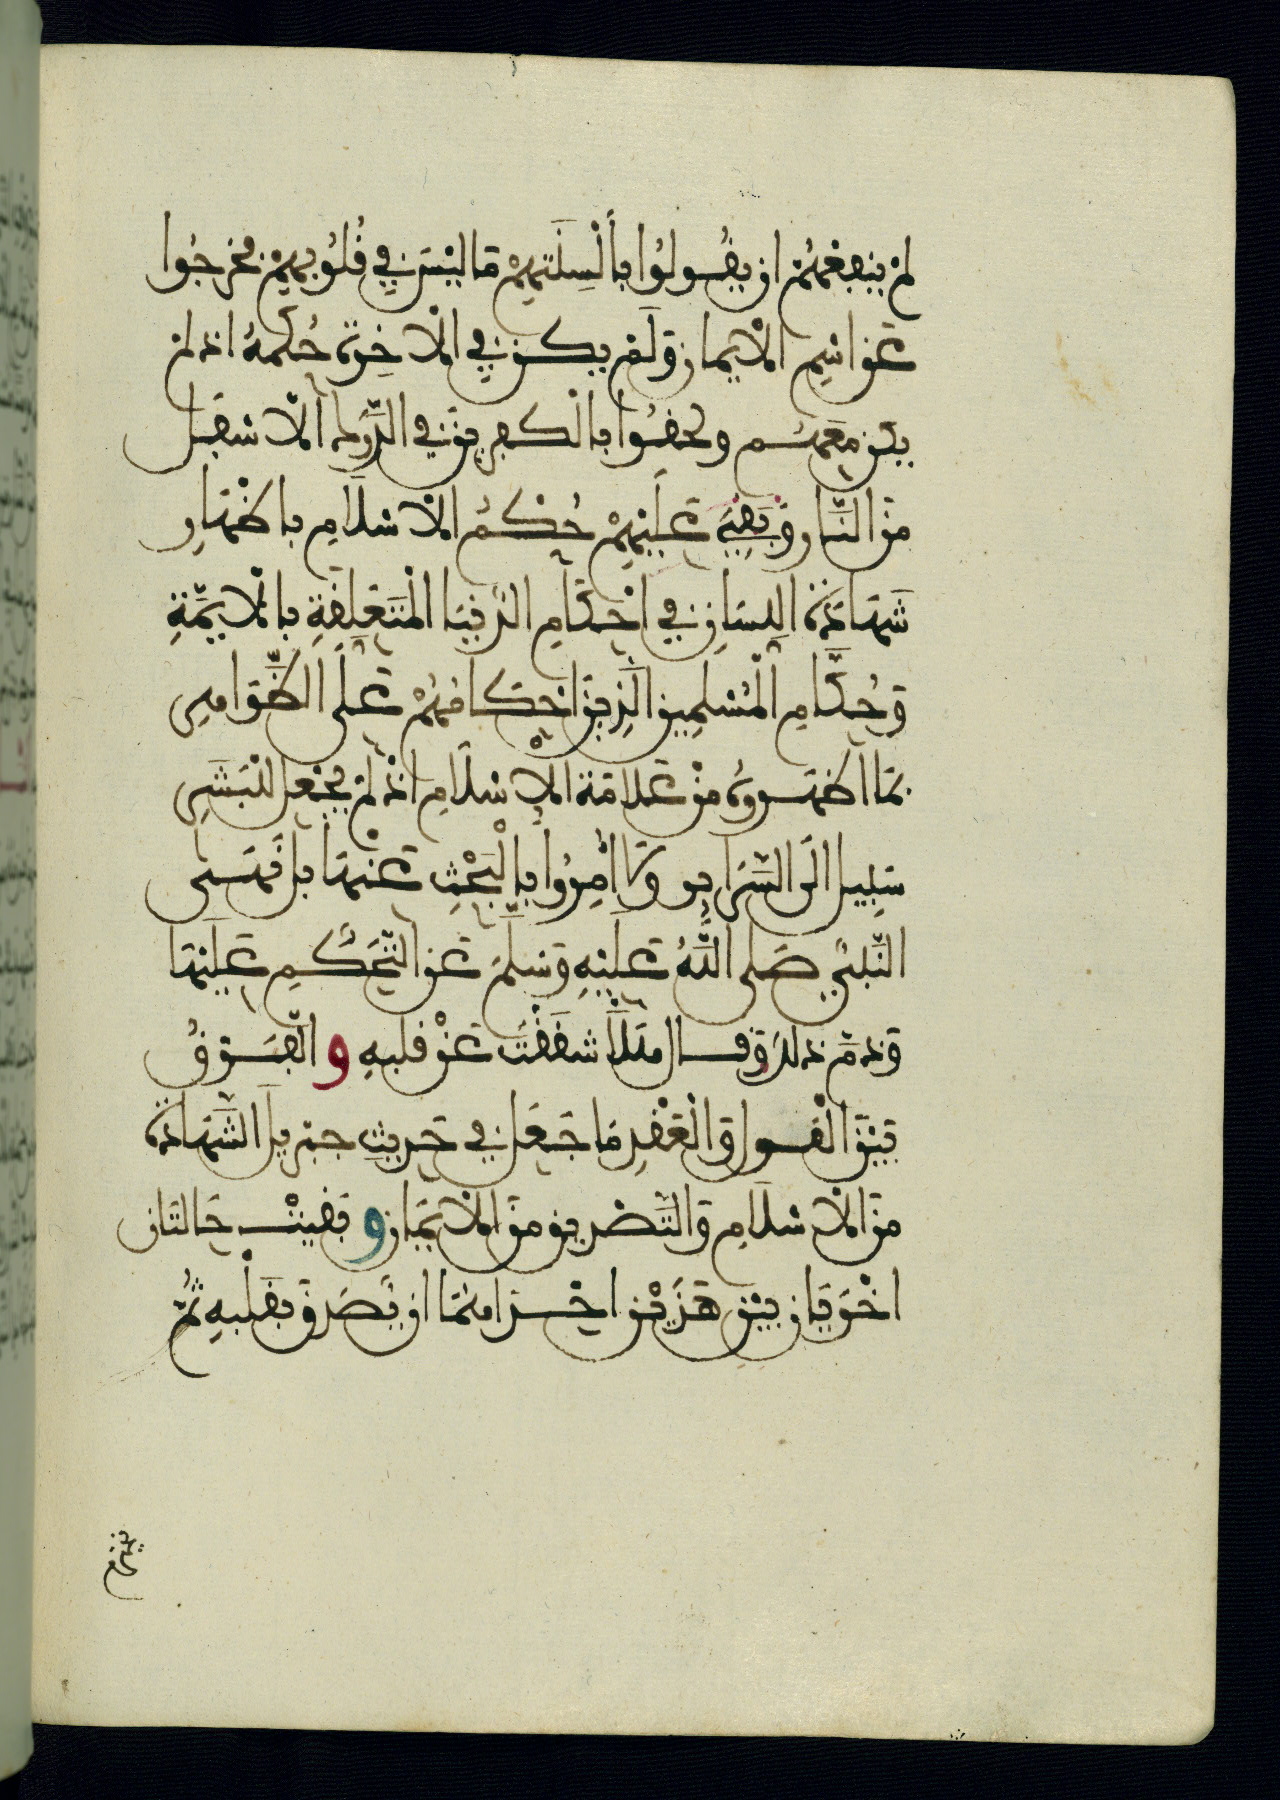 لم ينفعهم ان يقولوا بألسنتهم ما ليس في قلوبهم فخرجوا
عن اسم الايمان ولم يكن في الاخرة حكمه اذ لم
يكن معهم ولحقوا بالكفرين في الدرك الاسفل
من النار وبقي عليهم حكم الاسلام باظهار
شهادة اللسان في احكام الدنيا المتعلقة بالايمة
وحكام المسلمين الذين احكامهم على الظواهر
بما اظهروه من علامة الاسلام اذ لم يجعل للبشر
سبيل الى السراير ولا امروا بالبحث عنها بل نهى
النبي صلى الله عليه وسلم عن التحكم عليها
وذم ذلك وقال هلا شققت عن قلبه والفرق
بين القول والعقد ما جعل في حديث جبريل الشهادة
من الاسلام والتصديق من الايمان وبقيت حالتان
اخريان بين هذين احداهما ان يصدق بقلبه ثم